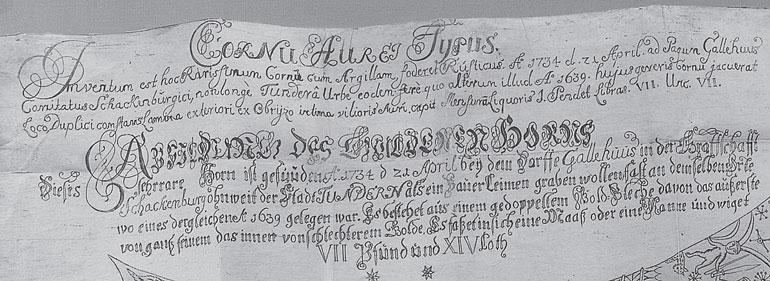 CORNU AUREI Typus.
Inventum est hoc Rarissimum Cornu cum Argillam foderet Rusticus. Aº 1734 d. 21 April. ad Pagum Gallehuus
Comitatus Schackenburgici, non longe Tunderâ Urbe eodem fere quo alterum illud Aº 1639. hujus generis Cornu jacuerat
Loco Duplici constans Lamina exteriori ex Obryzo intima vilioris Auri. capit Mensuram Liquoris I. Pendet Libras. VII. Unc. VII.
ABBILDUNG DES GULDENEN HORNS
Dieses sehr rare Horn ist gefunden Aº 1734 d 21 April bey dem Dorffe Gallehuus in der Graffschafft
Schackenburg ohnweit der Stadt TUNDERN als ein Bauer Leimen graben wollen fast an demselben Orte
wo eines dergleichen Aº 1639 gelegen war. Es bestehet aus einem gedoppeltem Gold-Bleche davon das äuserste
von gantz feinem das innere von schlechterem Golde. Es faßet in sich eine Maaß oder eine Kanne und wiget
VII Pfund und XIV Loth